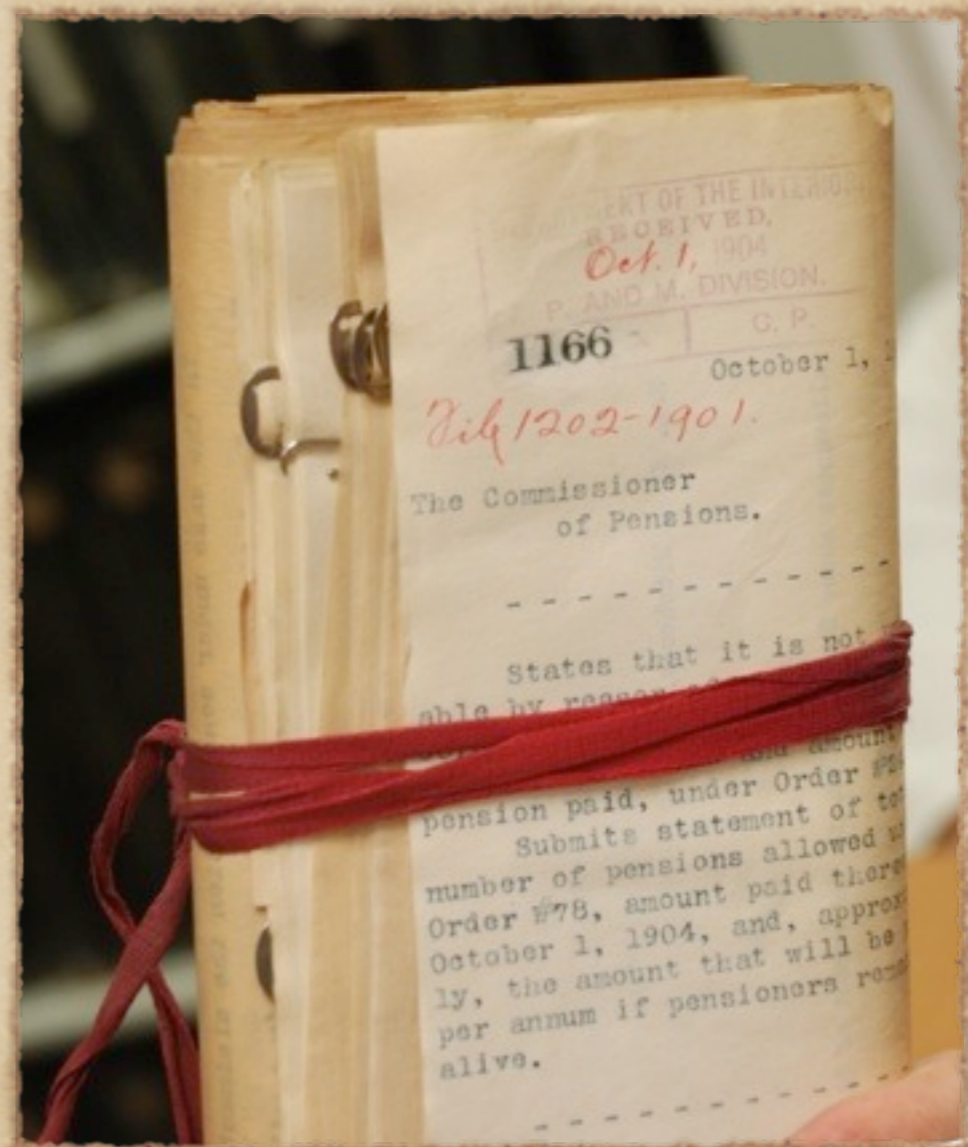 DEPARTMENT OF THE INTERIOR
RECEIVED,
Oct. 1, 1904
P. AND M. DIVISION.
1166 C. P.
October 1,
File 1202-1901.
The Commissioner
of Pensions.
- - - - - - - - - - - -
States that it is not
able by reason of
and amount
pension paid, under Order
Submits statement of
number of pensions allowed
Order #78, amount paid
October 1, 1904, and,
ly, the amount that will be
per annum if pensioners
alive.
- - - - - - - - - - - -